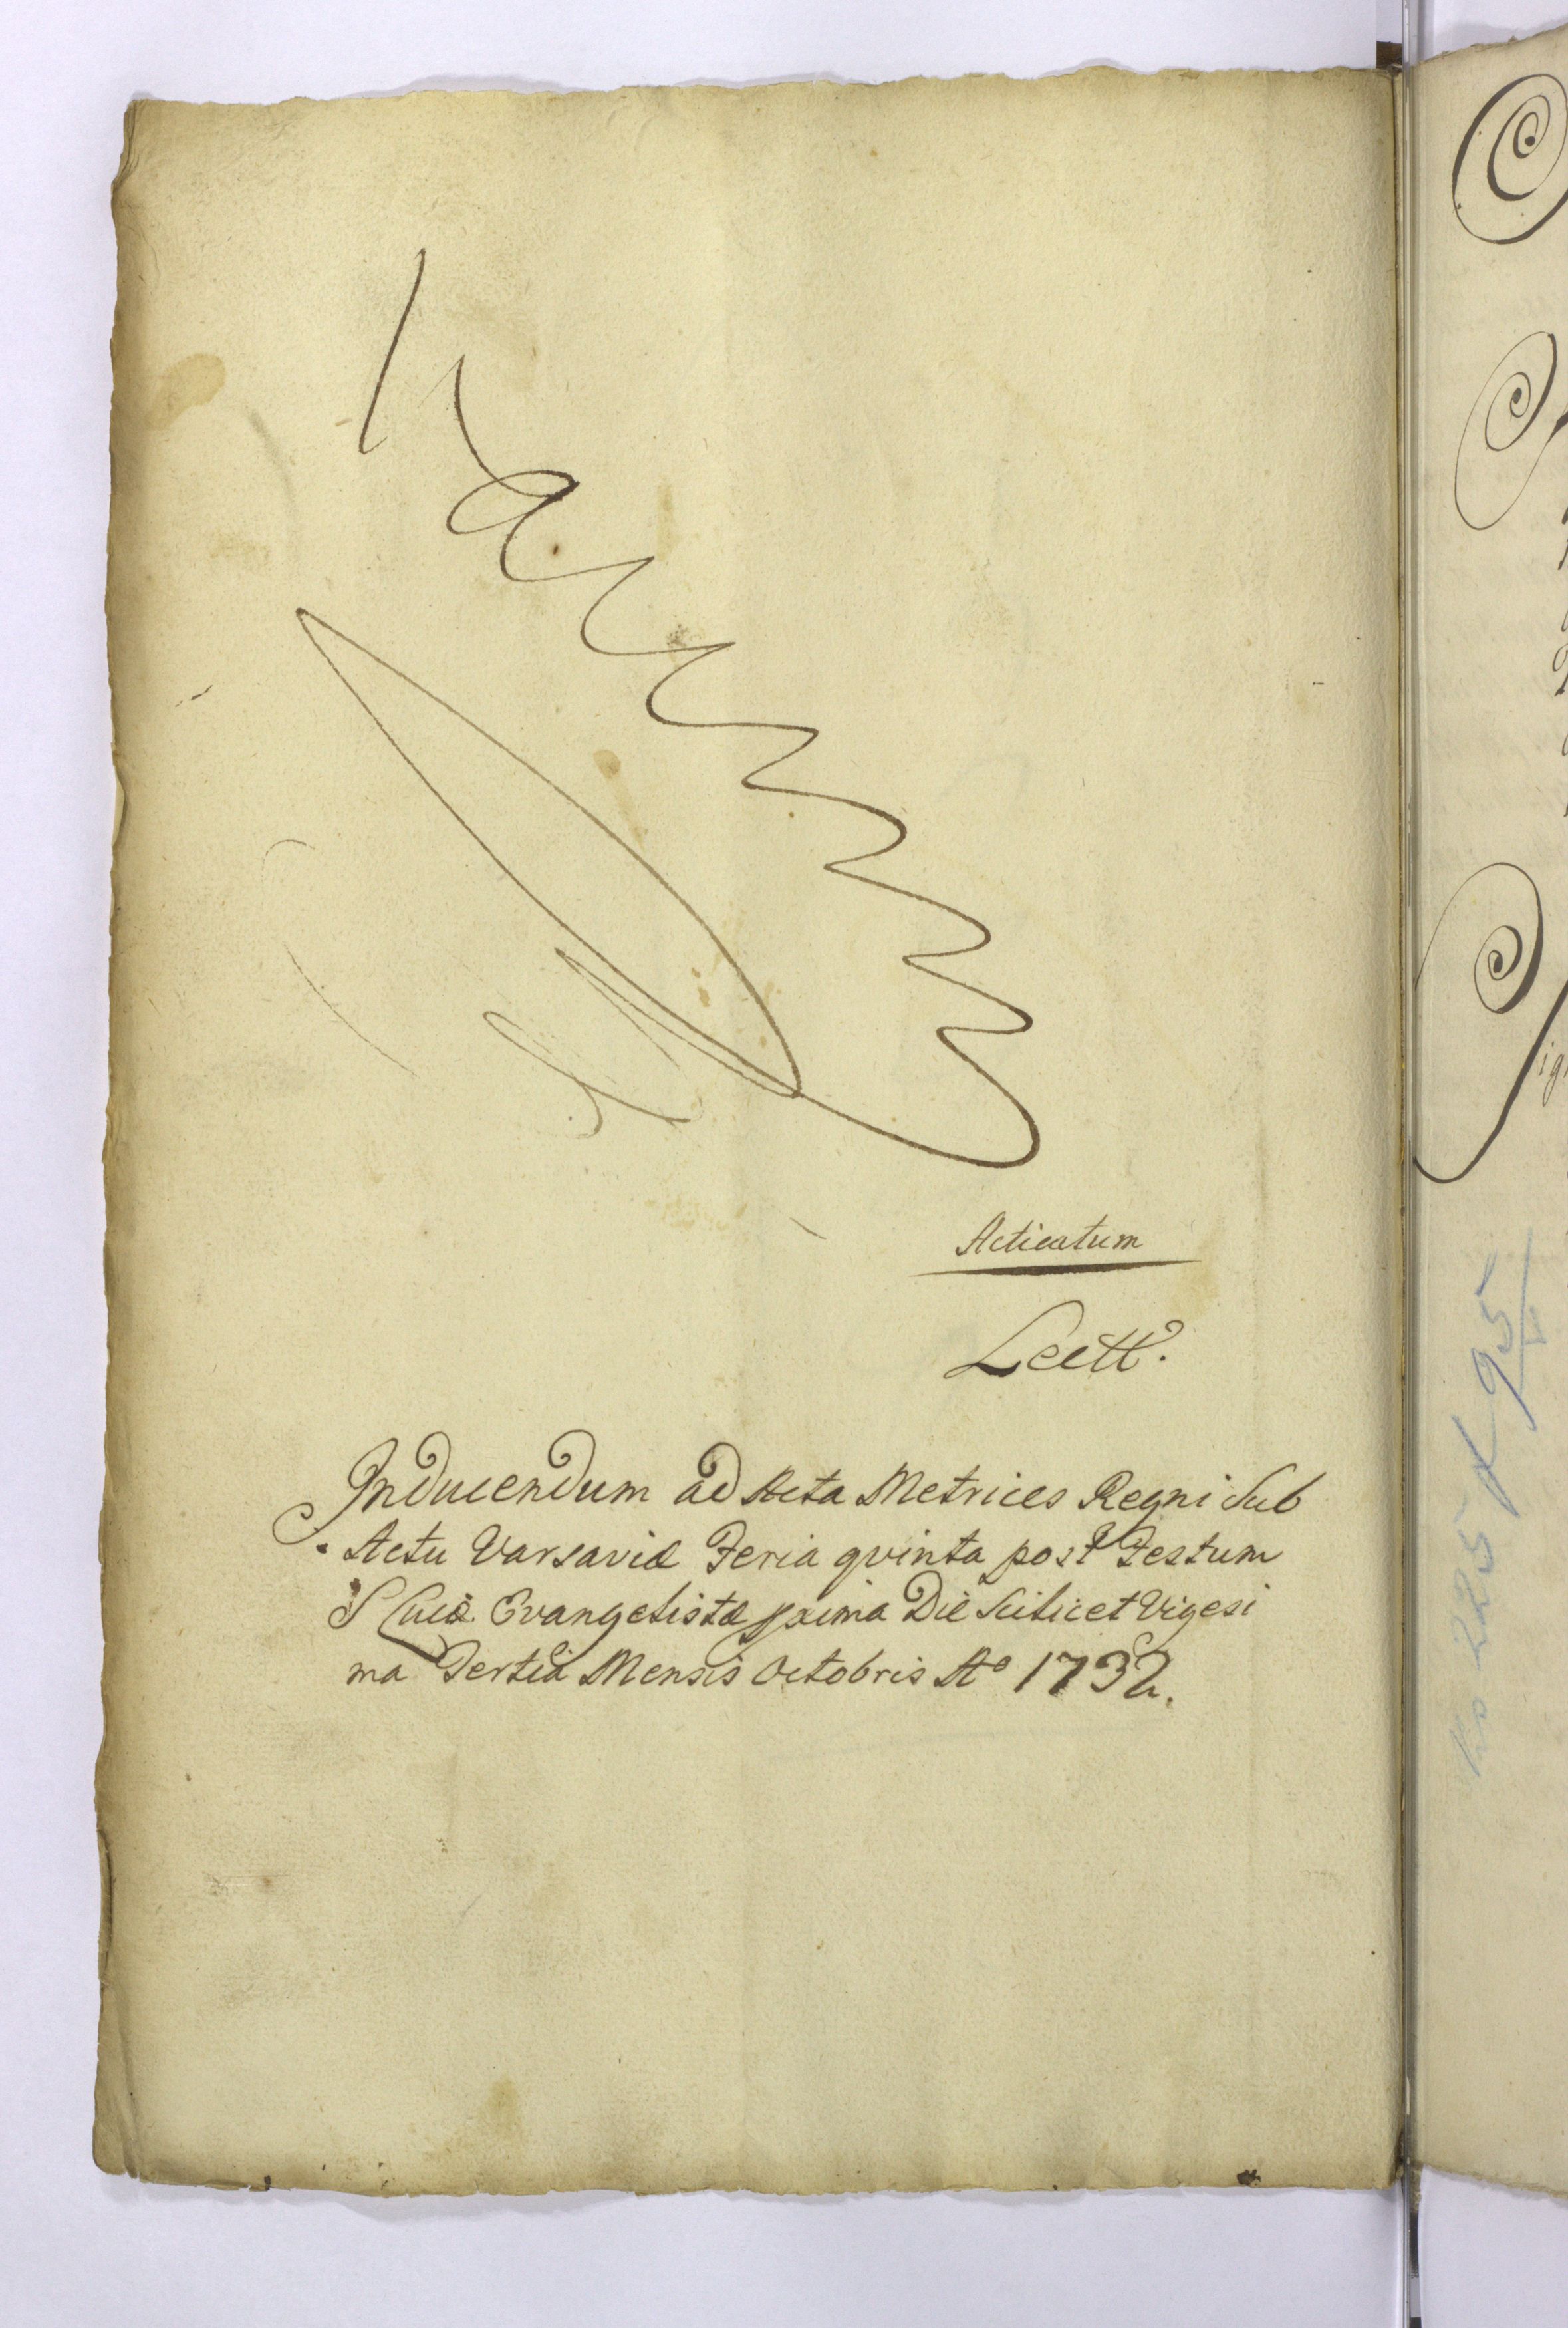 Acticatum
Lectt.
Inducendum ad Acta Metrices Regni Sub
Actu Varsaviæ Feria qvinta post Festum
S Lucæ Evangelistæ pxima Die Scilicet Vigesi
ma Tertia Mensis Octobris Ao 1732.
No 225